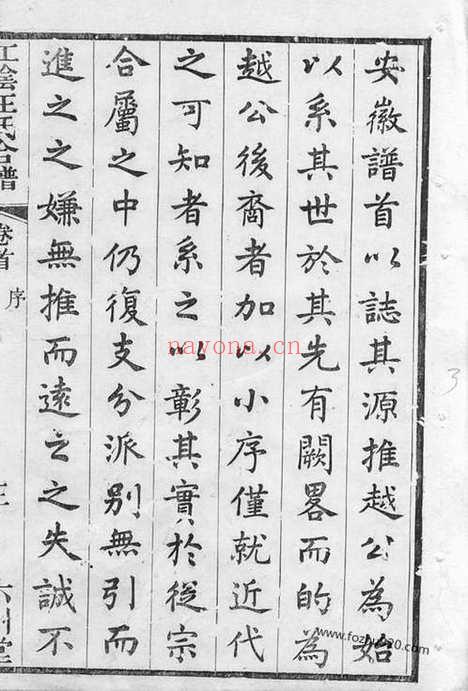 安徽譜首以誌其源推越公為始
以系其世於其先有闕畧而的為
越公後裔者加以小序僅就近代
之可知者系之以彰其實於從宗
合屬之中仍復支分派別無引而
進之之嫌無推而遠之之失誠不
江陰汪氏合譜
卷首
序
3
nayona.cn